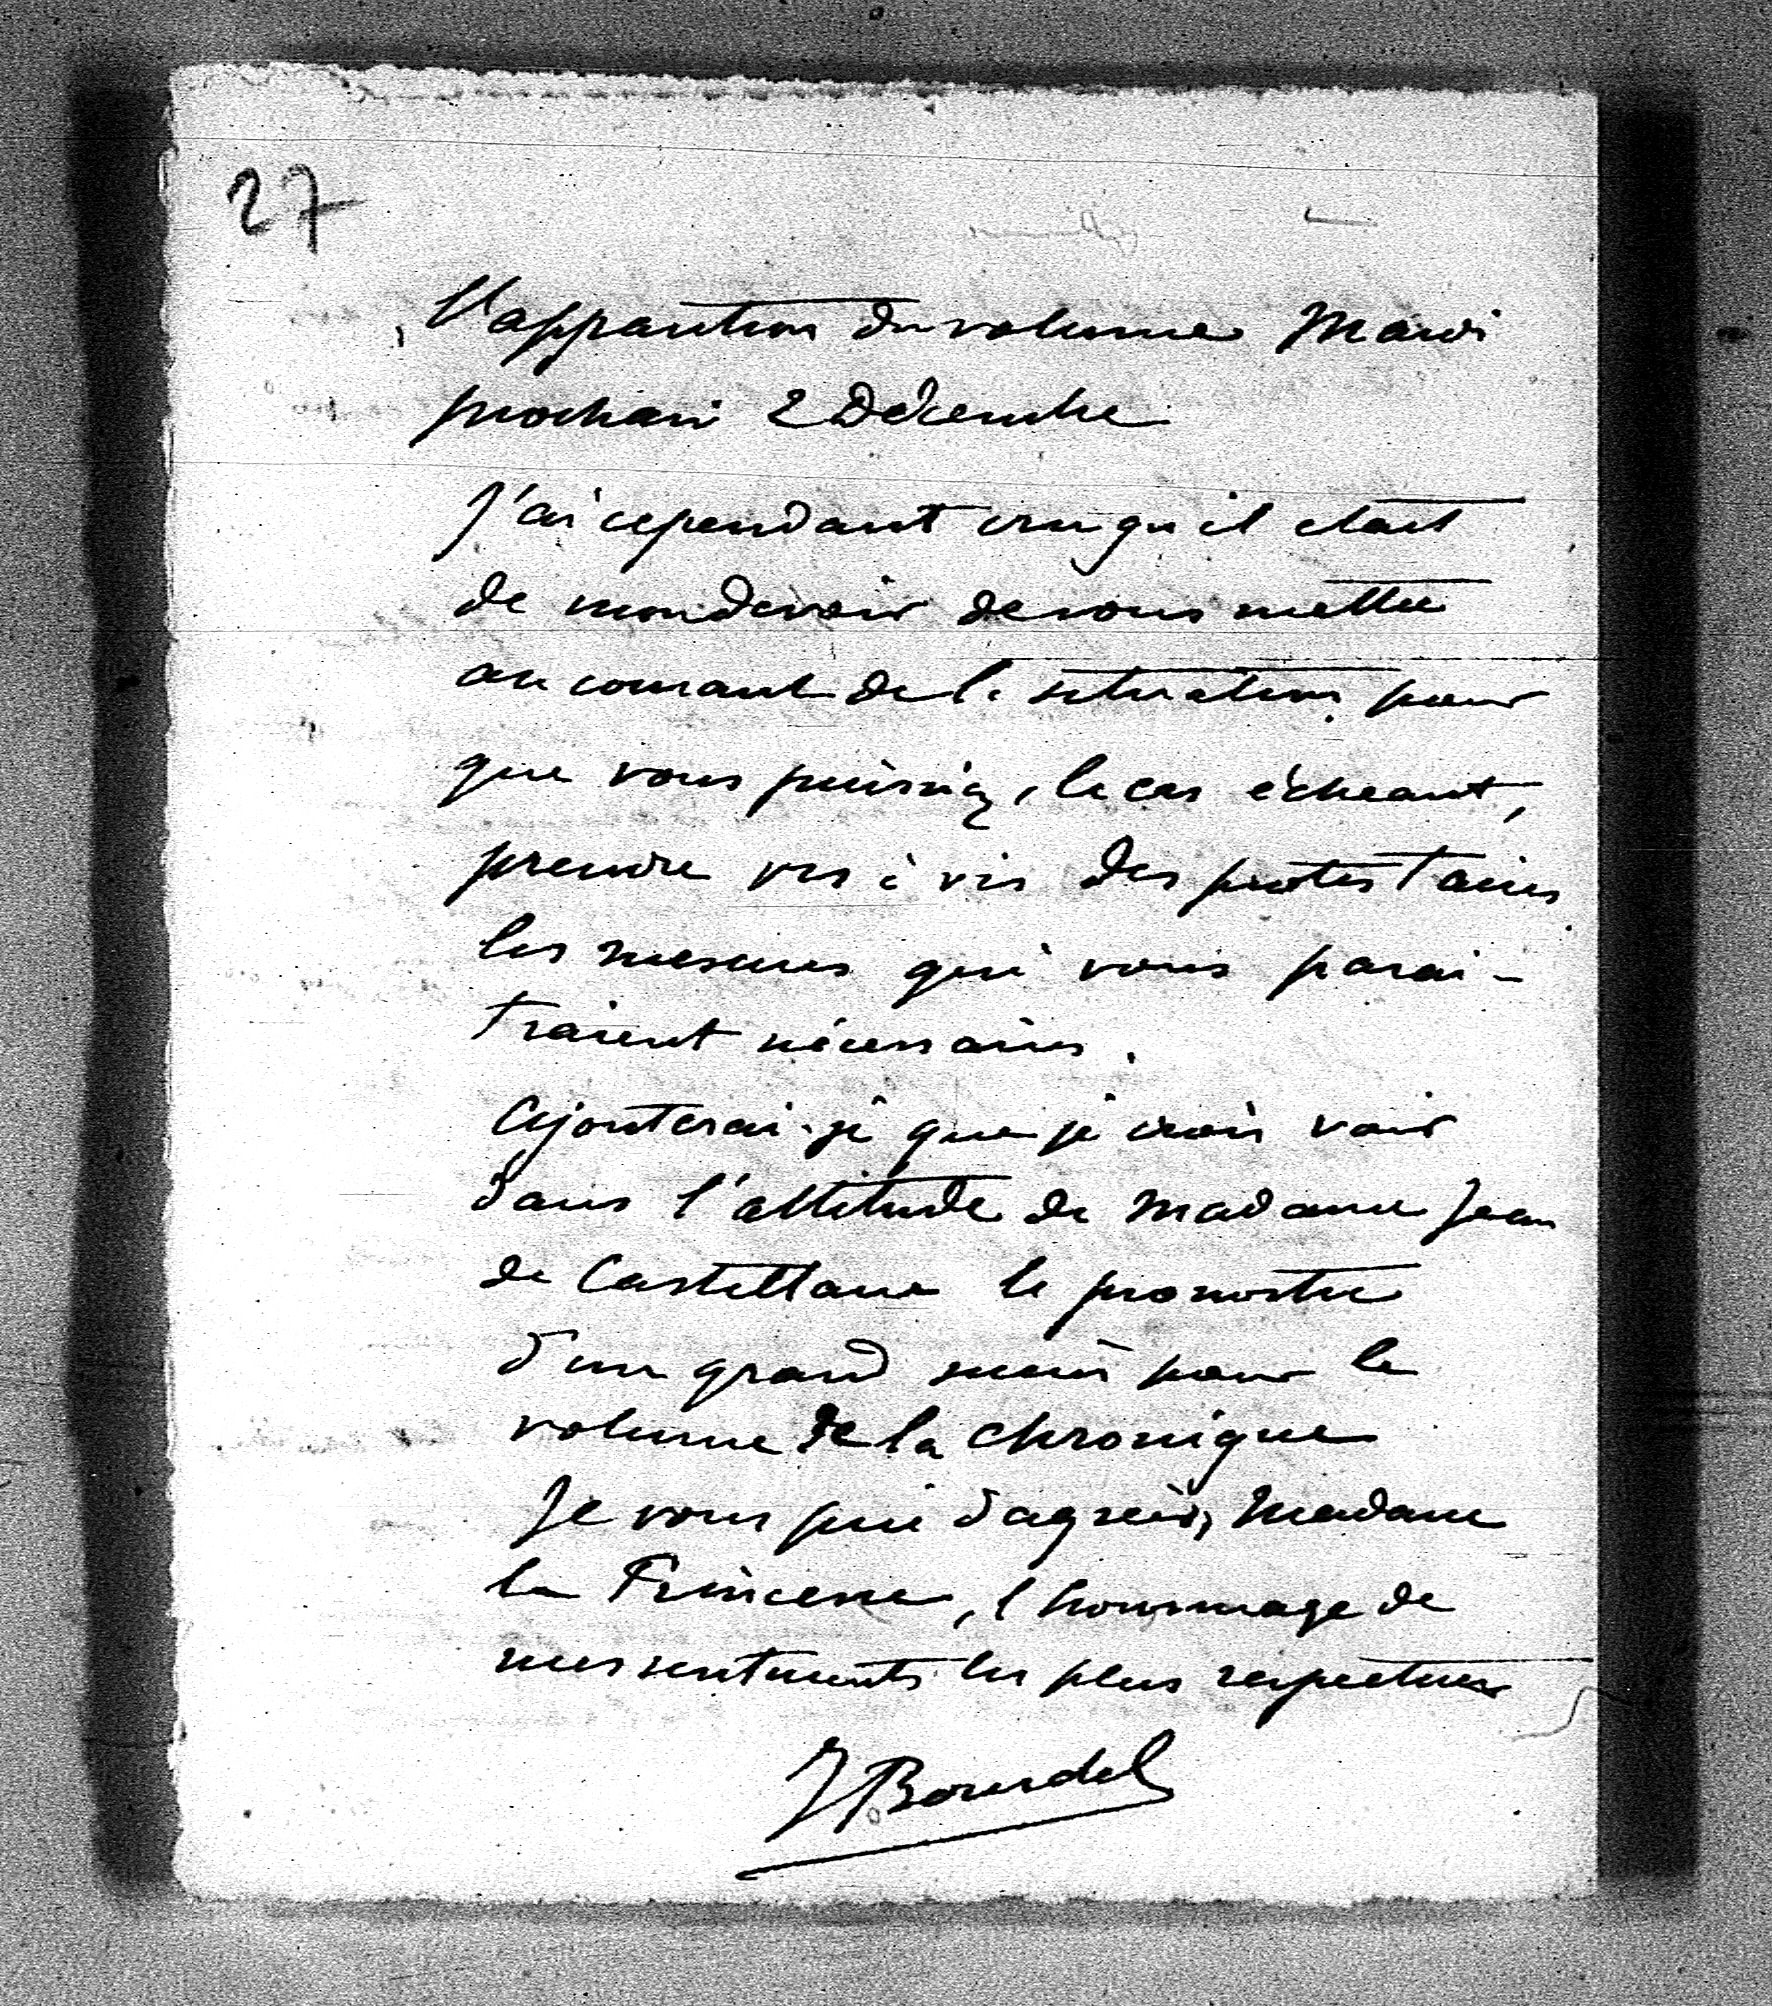 27
l'apparition du volume Mardi
prochain 2 Décembre
J'ai cependant cru qu'il etait
de mon devoir de vous mettre
au courant de la situation pour
que vous puissiez, le cas échéant,
prendre vis à vis des protestaires
les mesures qui vous parai-
traient nécessaires.
Ajouterai-je que je crois voir
dans l'attitude de Madame Jean
de Castellane le pronostic
d'un grand succès pour le
volume de la chronique
Je vous prie d'agréer, Madame
la Princesse, l'hommage de
mes sentiments les plus respectueux
J Bourdel